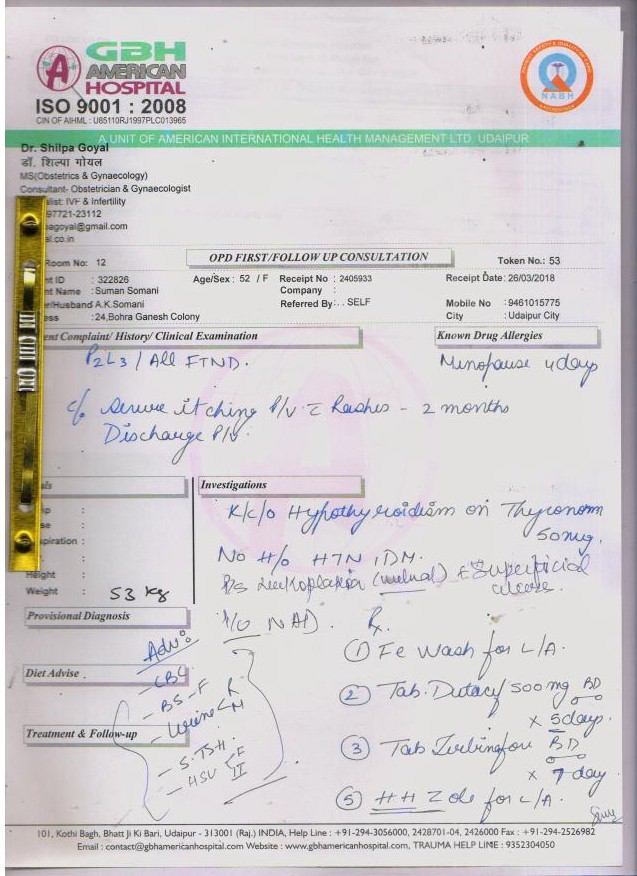 GBH
AMERICAN
HOSPITAL
ISO 9001 : 2008
CIN OF AIHML : U85110RJ1997PLC013965
NABH
A UNIT OF AMERICAN INTERNATIONAL HEALTH MANAGEMENT LTD. UDAIPUR
Dr. Shilpa Goyal
डॉ. शिल्पा गोयल
MS(Obstetrics & Gynaecology)
Consultant- Obstetrician & Gynaecologist
alist: IVF & Infertility
97721-23112
agoyal@gmail.com
al.co.in
Room No: 12 OPD FIRST/FOLLOW UP CONSULTATION Token No.: 53
nt ID : 322826 Age/Sex : 52 / F Receipt No : 2405933 Receipt Date: 26/03/2018
nt Name : Suman Somani Company :
er/Husband A.K.Somani Referred By : . . SELF Mobile No : 9461015775
ess : 24,Bohra Ganesh Colony City : Udaipur City
ent Complaint/ History/ Clinical Examination Known Drug Allergies
P2L3 / All FTND. Menopause 4days
c/o severe itching P/V c Rashes - 2 months
Discharge P/V
ls Investigations
K/c/o Hypothyroidism on Thyronorm
50mg.
No H/o HTN, DM.
piration :
Height :
Weight : 53 kg
P/S Leukoplakia + Superficial
Provisional Diagnosis
P/V NAD. Rx
Adv:
① Fe Wash for L/A.
- CBC
Diet Advise
- BS-F
② Tab. 500 mg BD
- Urine R M
x 5 days.
Treatment & Follow-up
③ Tab BD
- S. TSH.
x 7 day
- HSV II
⑤ HH Zole for L/A.
101, Kothi Bagh, Bhatt Ji Ki Bari, Udaipur - 313001 (Raj.) INDIA, Help Line : +91-294-3056000, 2428701-04, 2426000 Fax : +91-294-2526982
Email : contact@gbhamericanhospital.com Website : www.gbhamericanhospital.com, TRAUMA HELP LIME : 9352304050